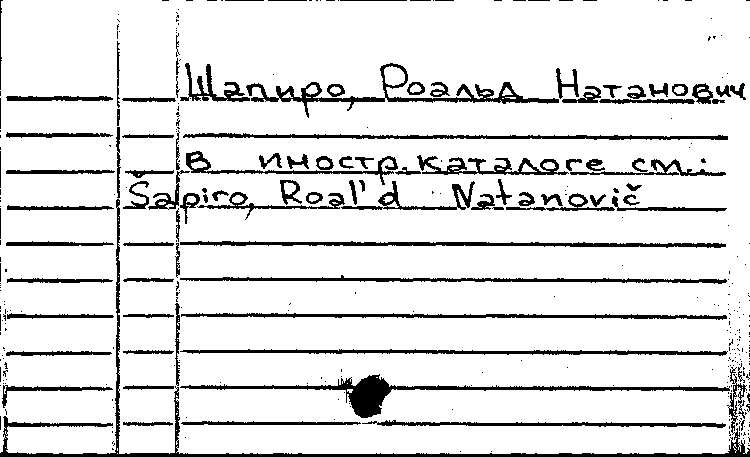 Шапиро, Роальд Натанович
В иностр. каталоге см.:
Šapiro, Roal'd Natanovič